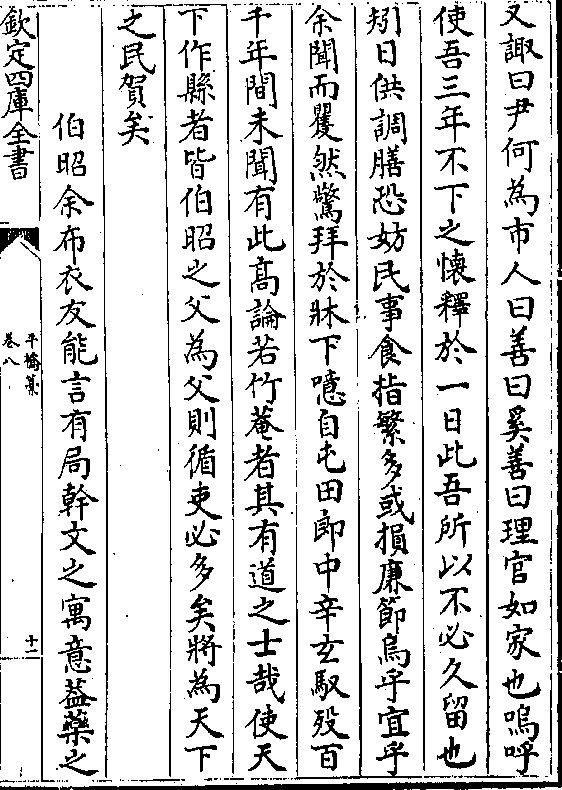 又諏曰尹何為市人曰善曰奚善曰理官如家也嗚呼
使吾三年不下之懐釋於一日此吾所以不必久留也
矧日供調膳恐妨民事食指繁多或損廉節烏乎宜乎
余聞而矍然驚拜於牀下噫自屯田郎中辛玄馭歿百
千年間未聞有此髙論若竹菴者其有道之士哉使天
下作縣者皆伯昭之父為父則循吏必多矣將為天下
之民賀矣
伯昭余布衣友能言有局幹文之寓意葢藥之
欽定四庫全書
平橋藁
卷八
十一